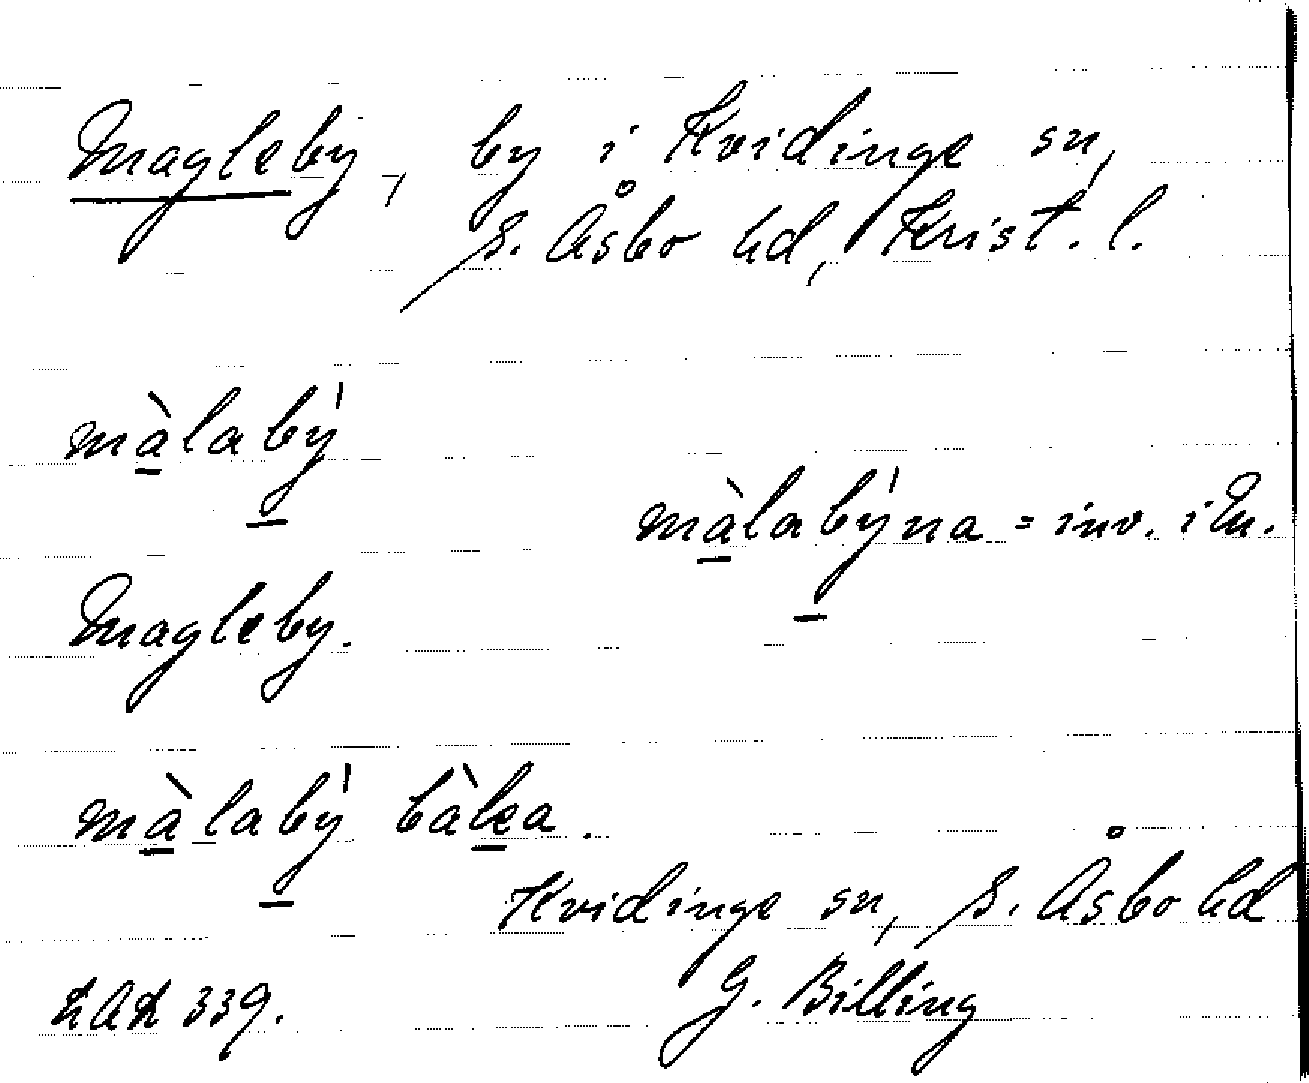 Magleby, by i Kvidinge sn,
S. Åsbo hd, Krist. l.
màlabý
màlabýna = inv. i
Magleby.
màlabý
Kvidinge sn, S. Åsbo hd
339.
G. Billing